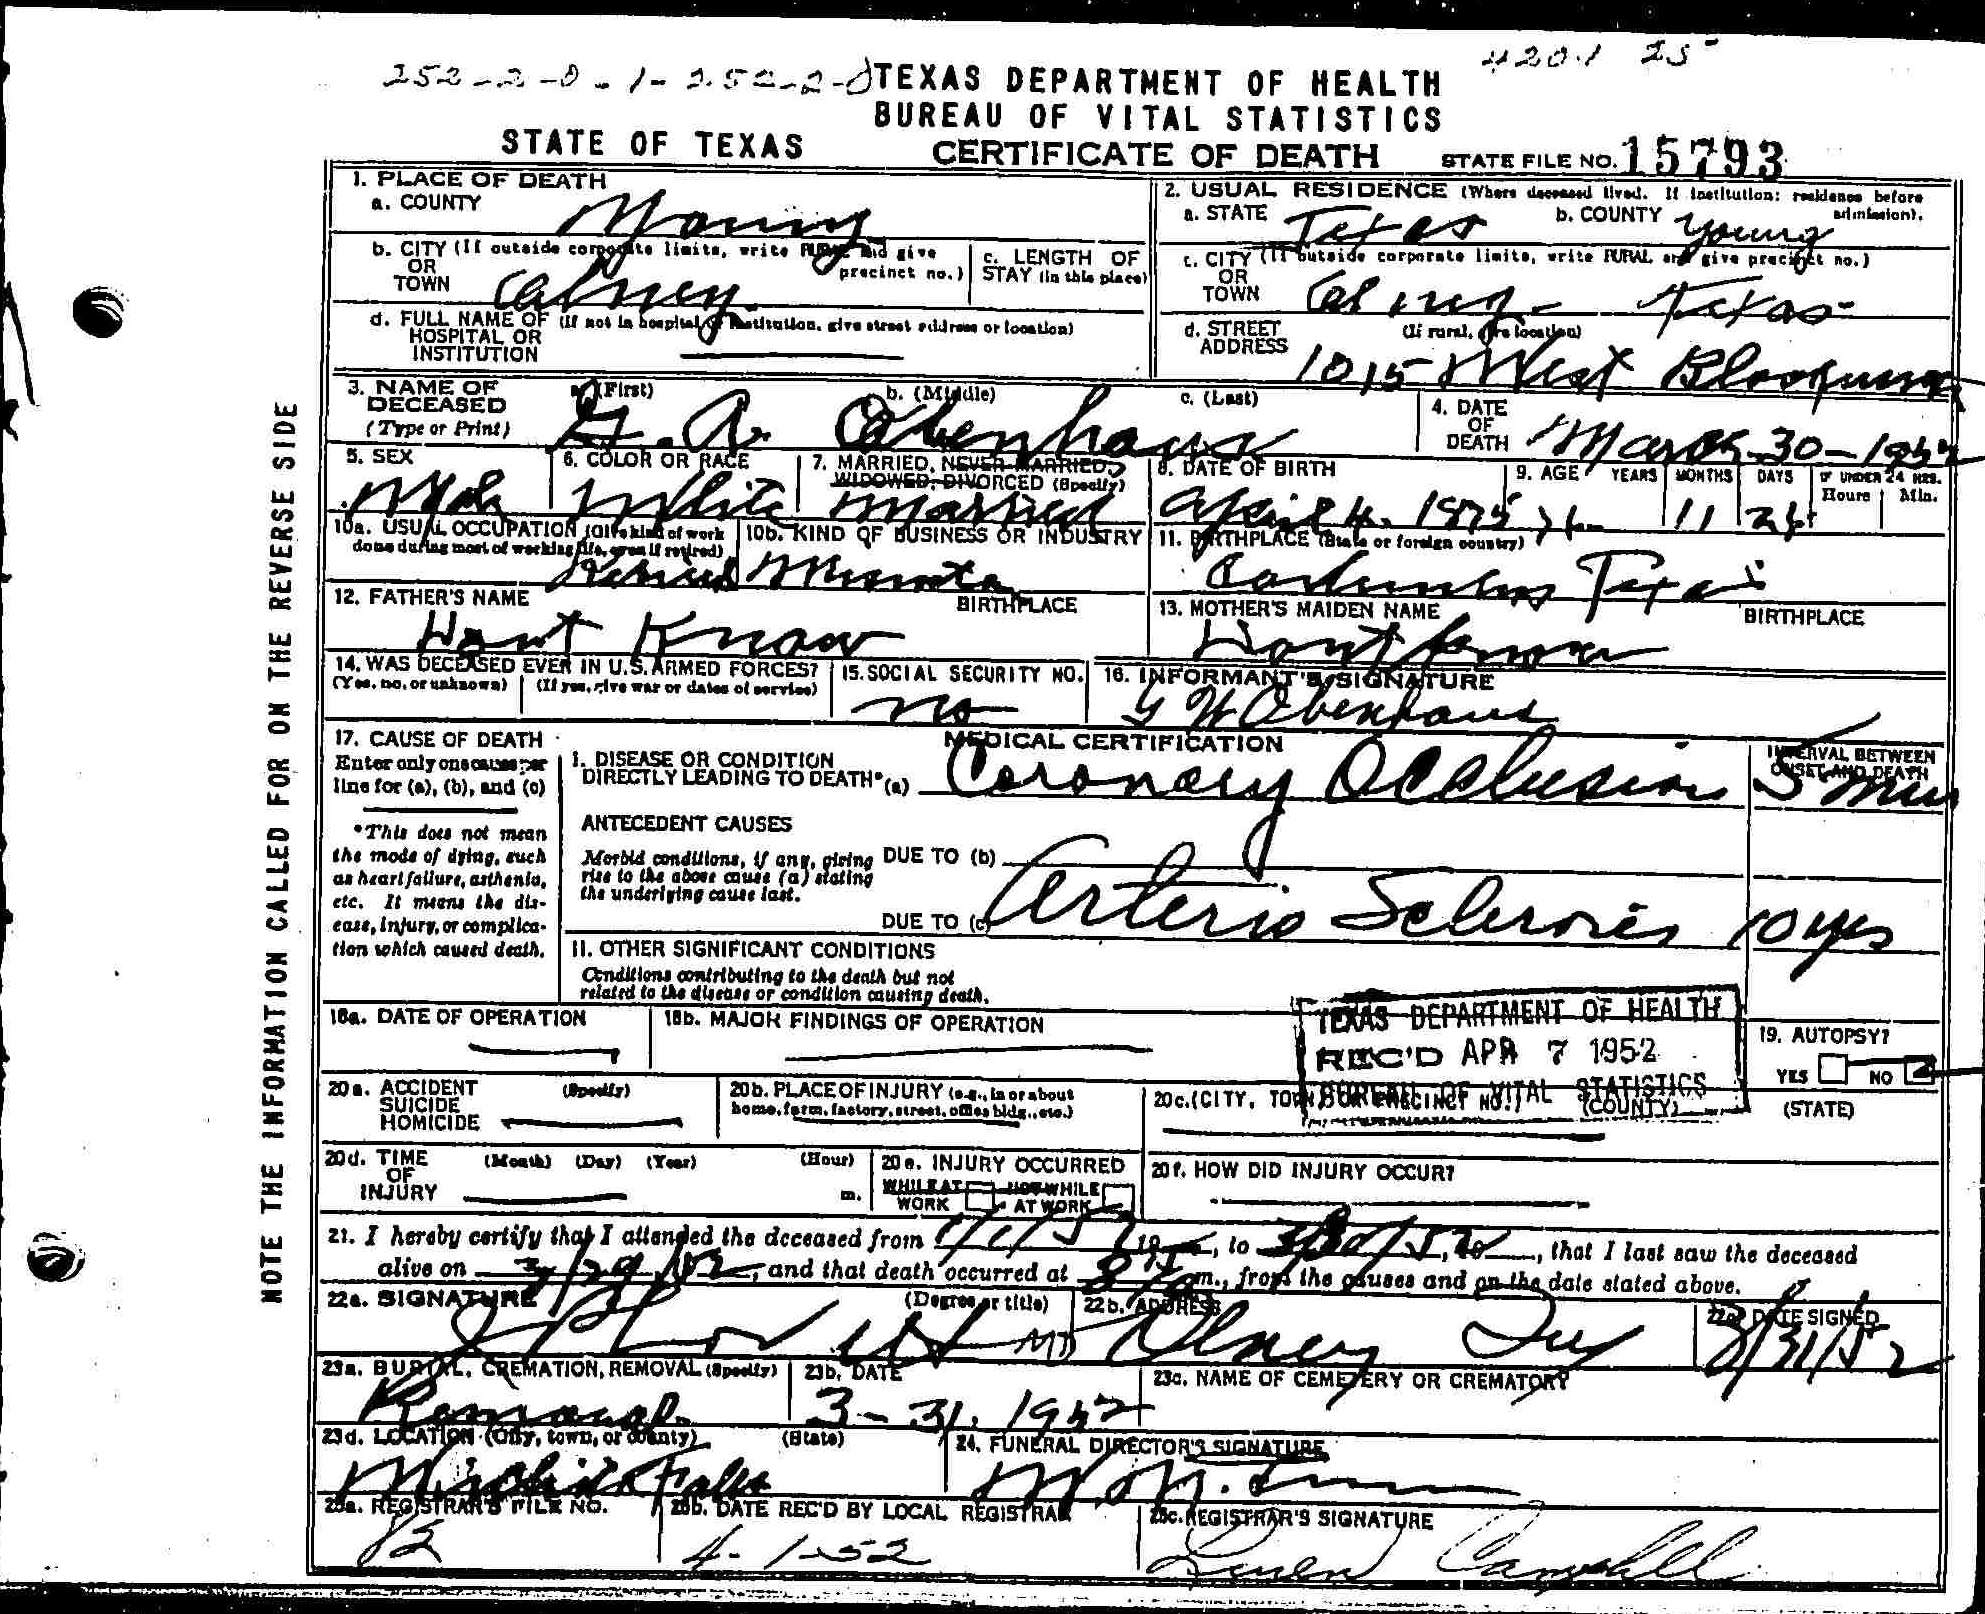 252-2-0-1-252-2-0
4201 25
TEXAS DEPARTMENT OF HEALTH
BUREAU OF VITAL STATISTICS
STATE OF TEXAS
CERTIFICATE OF DEATH
STATE FILE NO. 15793
NOTE THE INFORMATION CALLED FOR ON THE REVERSE SIDE
1. PLACE OF DEATH
a. COUNTY Young
2. USUAL RESIDENCE (Where deceased lived. If institution: residence before admission).
a. STATE Texas b. COUNTY Young
b. CITY (If outside corporate limits, write RURAL and give precinct no.)
OR
TOWN Olney
c. LENGTH OF
STAY (in this place)
c. CITY (If outside corporate limits, write RURAL and give precinct no.)
OR
TOWN Olney - Texas -
d. FULL NAME OF (If not in hospital or institution, give street address or location)
HOSPITAL OR
INSTITUTION
d. STREET (If rural, give location)
ADDRESS 1015 West
3. NAME OF
DECEASED
(Type or Print)
a. (First) b. (Middle) c. (Last)
G. A. Obenhaus
4. DATE
OF
DEATH March 30 - 1952
5. SEX
Male
6. COLOR OR RACE
White
7. MARRIED, NEVER MARRIED,
WIDOWED, DIVORCED (Specify)
Married
8. DATE OF BIRTH
April 4. 1875
9. AGE YEARS MONTHS DAYS IF UNDER 24 HRS.
Hours Min.
76 11 26
10a. USUAL OCCUPATION (Give kind of work
done during most of working life, even if retired)
Retired
10b. KIND OF BUSINESS OR INDUSTRY
11. BIRTHPLACE (State or foreign country)
Texas
12. FATHER'S NAME BIRTHPLACE
Dont Know
13. MOTHER'S MAIDEN NAME BIRTHPLACE
Dont Know
14. WAS DECEASED EVER IN U.S. ARMED FORCES?
(Yes, no, or unknown) (If yes, give war or dates of service)
15. SOCIAL SECURITY NO.
no
16. INFORMANT'S SIGNATURE
G W Obenhaus
17. CAUSE OF DEATH
Enter only one cause per
line for (a), (b), and (c)
*This does not mean
the mode of dying, such
as heart failure, asthenia,
etc. It means the dis-
ease, injury, or complica-
tion which caused death.
MEDICAL CERTIFICATION
I. DISEASE OR CONDITION
DIRECTLY LEADING TO DEATH* (a) Coronary Occlusion
INTERVAL BETWEEN
ONSET AND DEATH
5 min
ANTECEDENT CAUSES
Morbid conditions, if any, giving
rise to the above cause (a) stating
the underlying cause last.
DUE TO (b)
DUE TO (c) Arterio Sclerosis 10 yrs
II. OTHER SIGNIFICANT CONDITIONS
Conditions contributing to the death but not
related to the disease or condition causing death.
18a. DATE OF OPERATION
18b. MAJOR FINDINGS OF OPERATION
TEXAS DEPARTMENT OF HEALTH
REC'D APR 7 1952
BUREAU OF VITAL STATISTICS
19. AUTOPSY?
YES NO
20a. ACCIDENT (Specify)
SUICIDE
HOMICIDE
20b. PLACE OF INJURY (e.g., in or about
home, farm, factory, street, office bldg., etc.)
20c. (CITY, TOWN, OR PRECINCT NO.) (COUNTY) (STATE)
20d. TIME (Month) (Day) (Year) (Hour)
OF
INJURY m.
20e. INJURY OCCURRED
WHILE AT WORK NOT WHILE AT WORK
20f. HOW DID INJURY OCCUR?
21. I hereby certify that I attended the deceased from 1/1/52, 19, to 3/30/52, 19, that I last saw the deceased
alive on 3/29/52, and that death occurred at m., from the causes and on the date stated above.
22a. SIGNATURE (Degree or title)
MD
22b. ADDRESS
Olney Tex
22c. DATE SIGNED
3/31/52
23a. BURIAL, CREMATION, REMOVAL (Specify)
Removal
23b. DATE
3-31. 1952
23c. NAME OF CEMETERY OR CREMATORY
23d. LOCATION (City, town, or county) (State)
Wichita Falls
24. FUNERAL DIRECTOR'S SIGNATURE
25a. REGISTRAR'S FILE NO.
25b. DATE REC'D BY LOCAL REGISTRAR
4-1-52
25c. REGISTRAR'S SIGNATURE
Campbell